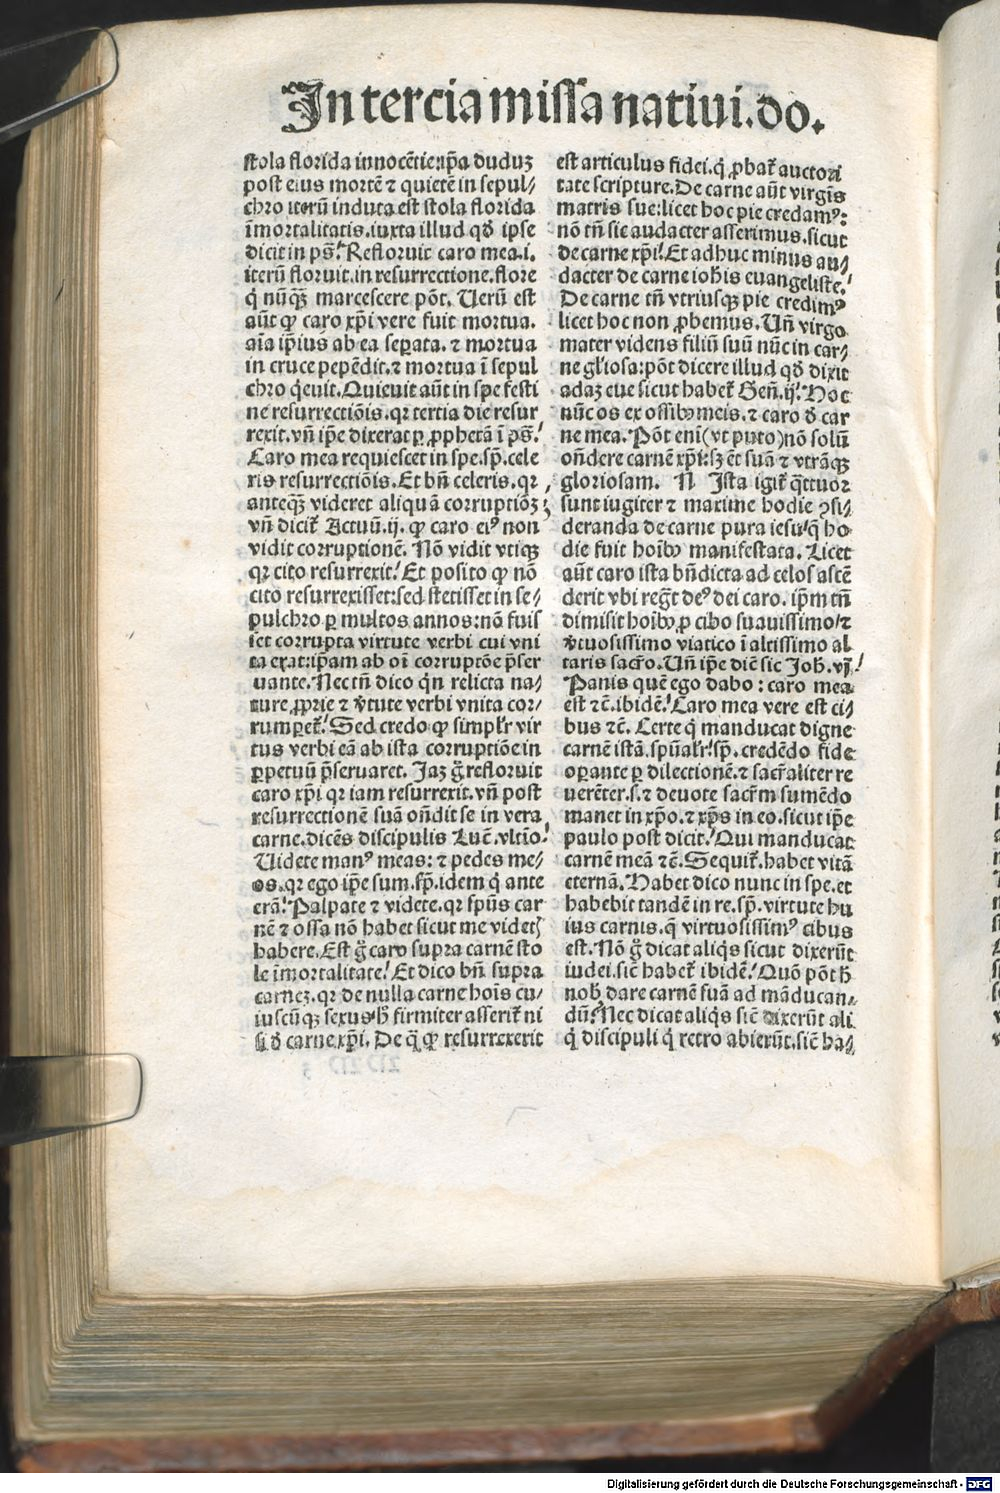 In tercia missa nativi. do.
stola florida innocētie: ip̄a duduȝ
post eius mortē ⁊ quietē in sepul/
chro iterū induta est stola florida
īmortalitatis. iuxta illud qḋ ipse
dicit in ps̄. Refloruit caro mea. i.
iterū floruit. in resurrectione. flore
q̇ nūq̄ꝫ marcescere pōt. Uerū est
aūt ꝙ caro xp̄i vere fuit mortua.
aīa ip̄ius ab ea seꝑata. ⁊ mortua
in cruce pepēdit. ⁊ mortua ī sepul
chro q̇euit. Quieuit aūt in spe festi
ne resurrectiōis. qꝛ tertia die resur
rexit. vñ ip̄e dixerat ꝑ ꝓphetā ī ps̄.
Caro mea requiescet in spe. sp̄. cele
ris resurrectiōis. Et bn̄ celeris. qꝛ
anteq̄ꝫ videret aliquā corruptiōȝ
vñ dicit̄ Actuū. ij. ꝙ caro eiꝰ non
vidit corruptionē. Nō vidit vtiqꝫ
qꝛ cito resurrexit. Et posito ꝙ nō
cito resurrexisset: sed stetisset in se/
pulchro ꝑ multos annos: nō fuis
set corrupta virtute verbi cui vni
ta erat: ip̄am ab oī corruptōe p̄ser
uante. Nec tn̄ dico q̇n relicta na/
ture ꝓprie ⁊ v̄tute verbi vnita cor/
rumꝑet̄. Sed credo ꝙ simpl̄r vir
tus verbi eā ab ista corruptiōe in
ꝑpetuū p̄seruaret. Jaȝ g̊ refloruit
caro xp̄i qꝛ iam resurrexit. vñ post
resurrectionē suā on̄dit se in vera
carne. dicēs discipulis Luc̄. vltīo.
Uidete manꝰ meas: ⁊ pedes me/
os. qꝛ ego ip̄e sum. sp̄. idem q̇ ante
erā. Palpate ⁊ videte. qꝛ sp̄us car
nē ⁊ ossa nō habet sicut me videtꝭ
habere. Est g̊ caro supra carnē sto
le īmortalitate. Et dico bn̄ supra
carneȝ. qꝛ de nulla carne hoīs cu/
iuscūqꝫ sexus h̄ firmiter asserit̄ ni
si ḋ carne xp̄i. De q̄ q̇ ꝙ resurrexerit
est articulus fidei. q̇ ꝓbat̄ auctori
tate scripture. De carne aūt virgīs
matris sue: licet hoc pie credamꝰ:
nō tn̄ sic audacter asserimus. sicut
de carne xp̄i. Et adhuc minus au/
dacter de carne ioh̄is euangeliste.
De carne tn̄ vtriusqꝫ pie credimꝰ
licet hoc non ꝓbemus. Uñ virgo
mater videns filiū suū nūc in car/
ne gl̄iosa: pōt dicere illud qḋ dixit
adaȝ eue sicut habet̄ Gen̄. ij. Hoc
nūc os ex ossibꝫ meis. ⁊ caro ḋ car
ne mea. Pōt enī (vt puto) nō solū
on̄dere carnē xp̄i: sȝ et̄ suā ⁊ vtrāqꝫ
gloriosam. N Ista igit̄ q̄ttuor
sunt iugiter ⁊ maxime hodie ꝯsi/
deranda de carne pura iesu. q̄ ho
die fuit hoībꝫ manifestata. Licet
aūt caro ista bn̄dicta ad celos ascē
derit vbi reḡt deꝰ dei caro. ip̄m tn̄
dimisit hoībꝫ ꝓ cibo suauissimo/ ⁊
v̄tuosissimo viatico ī altissimo al
taris sacr̄o. Uñ ip̄e dic̄ sic Joh̄. vj.
Panis quē ego dabo: caro mea
est ⁊c̄. ibidē. Caro mea vere est ci/
bus ⁊c̄. Certe q̇ manducat digne
carnē istā. sp̄ual̄r. sp̄. credēdo fide
oꝑante ꝑ dilectionē. ⁊ sacr̄aliter re
uerēter. s. ⁊ deuote sacr̄m sumēdo
manet in xp̄o. ⁊ xp̄s in eo. sicut ip̄e
paulo post dicit. Qui manducat
carnē meā ⁊c̄. Sequit̄. habet vitā
eternā. Habet dico nunc in spe. et
habebit tandē in re. sp̄. virtute hu
ius carnis. q̄ virtuosissimꝰ cibus
est. Nō g̊ dicat aliq̇s sicut dixerūt
iudei. sic̄ habet̄ ibidē. Quō pōt h̄
nob̄ dare carnē suā ad māducan/
dū. Nec dicat aliq̇s sic̄ dixerūt ali
q̇ discipuli q̇ retro abierūt. sic̄ ha/
Digitalisierung gefördert durch die Deutsche Forschungsgemeinschaft - DFG